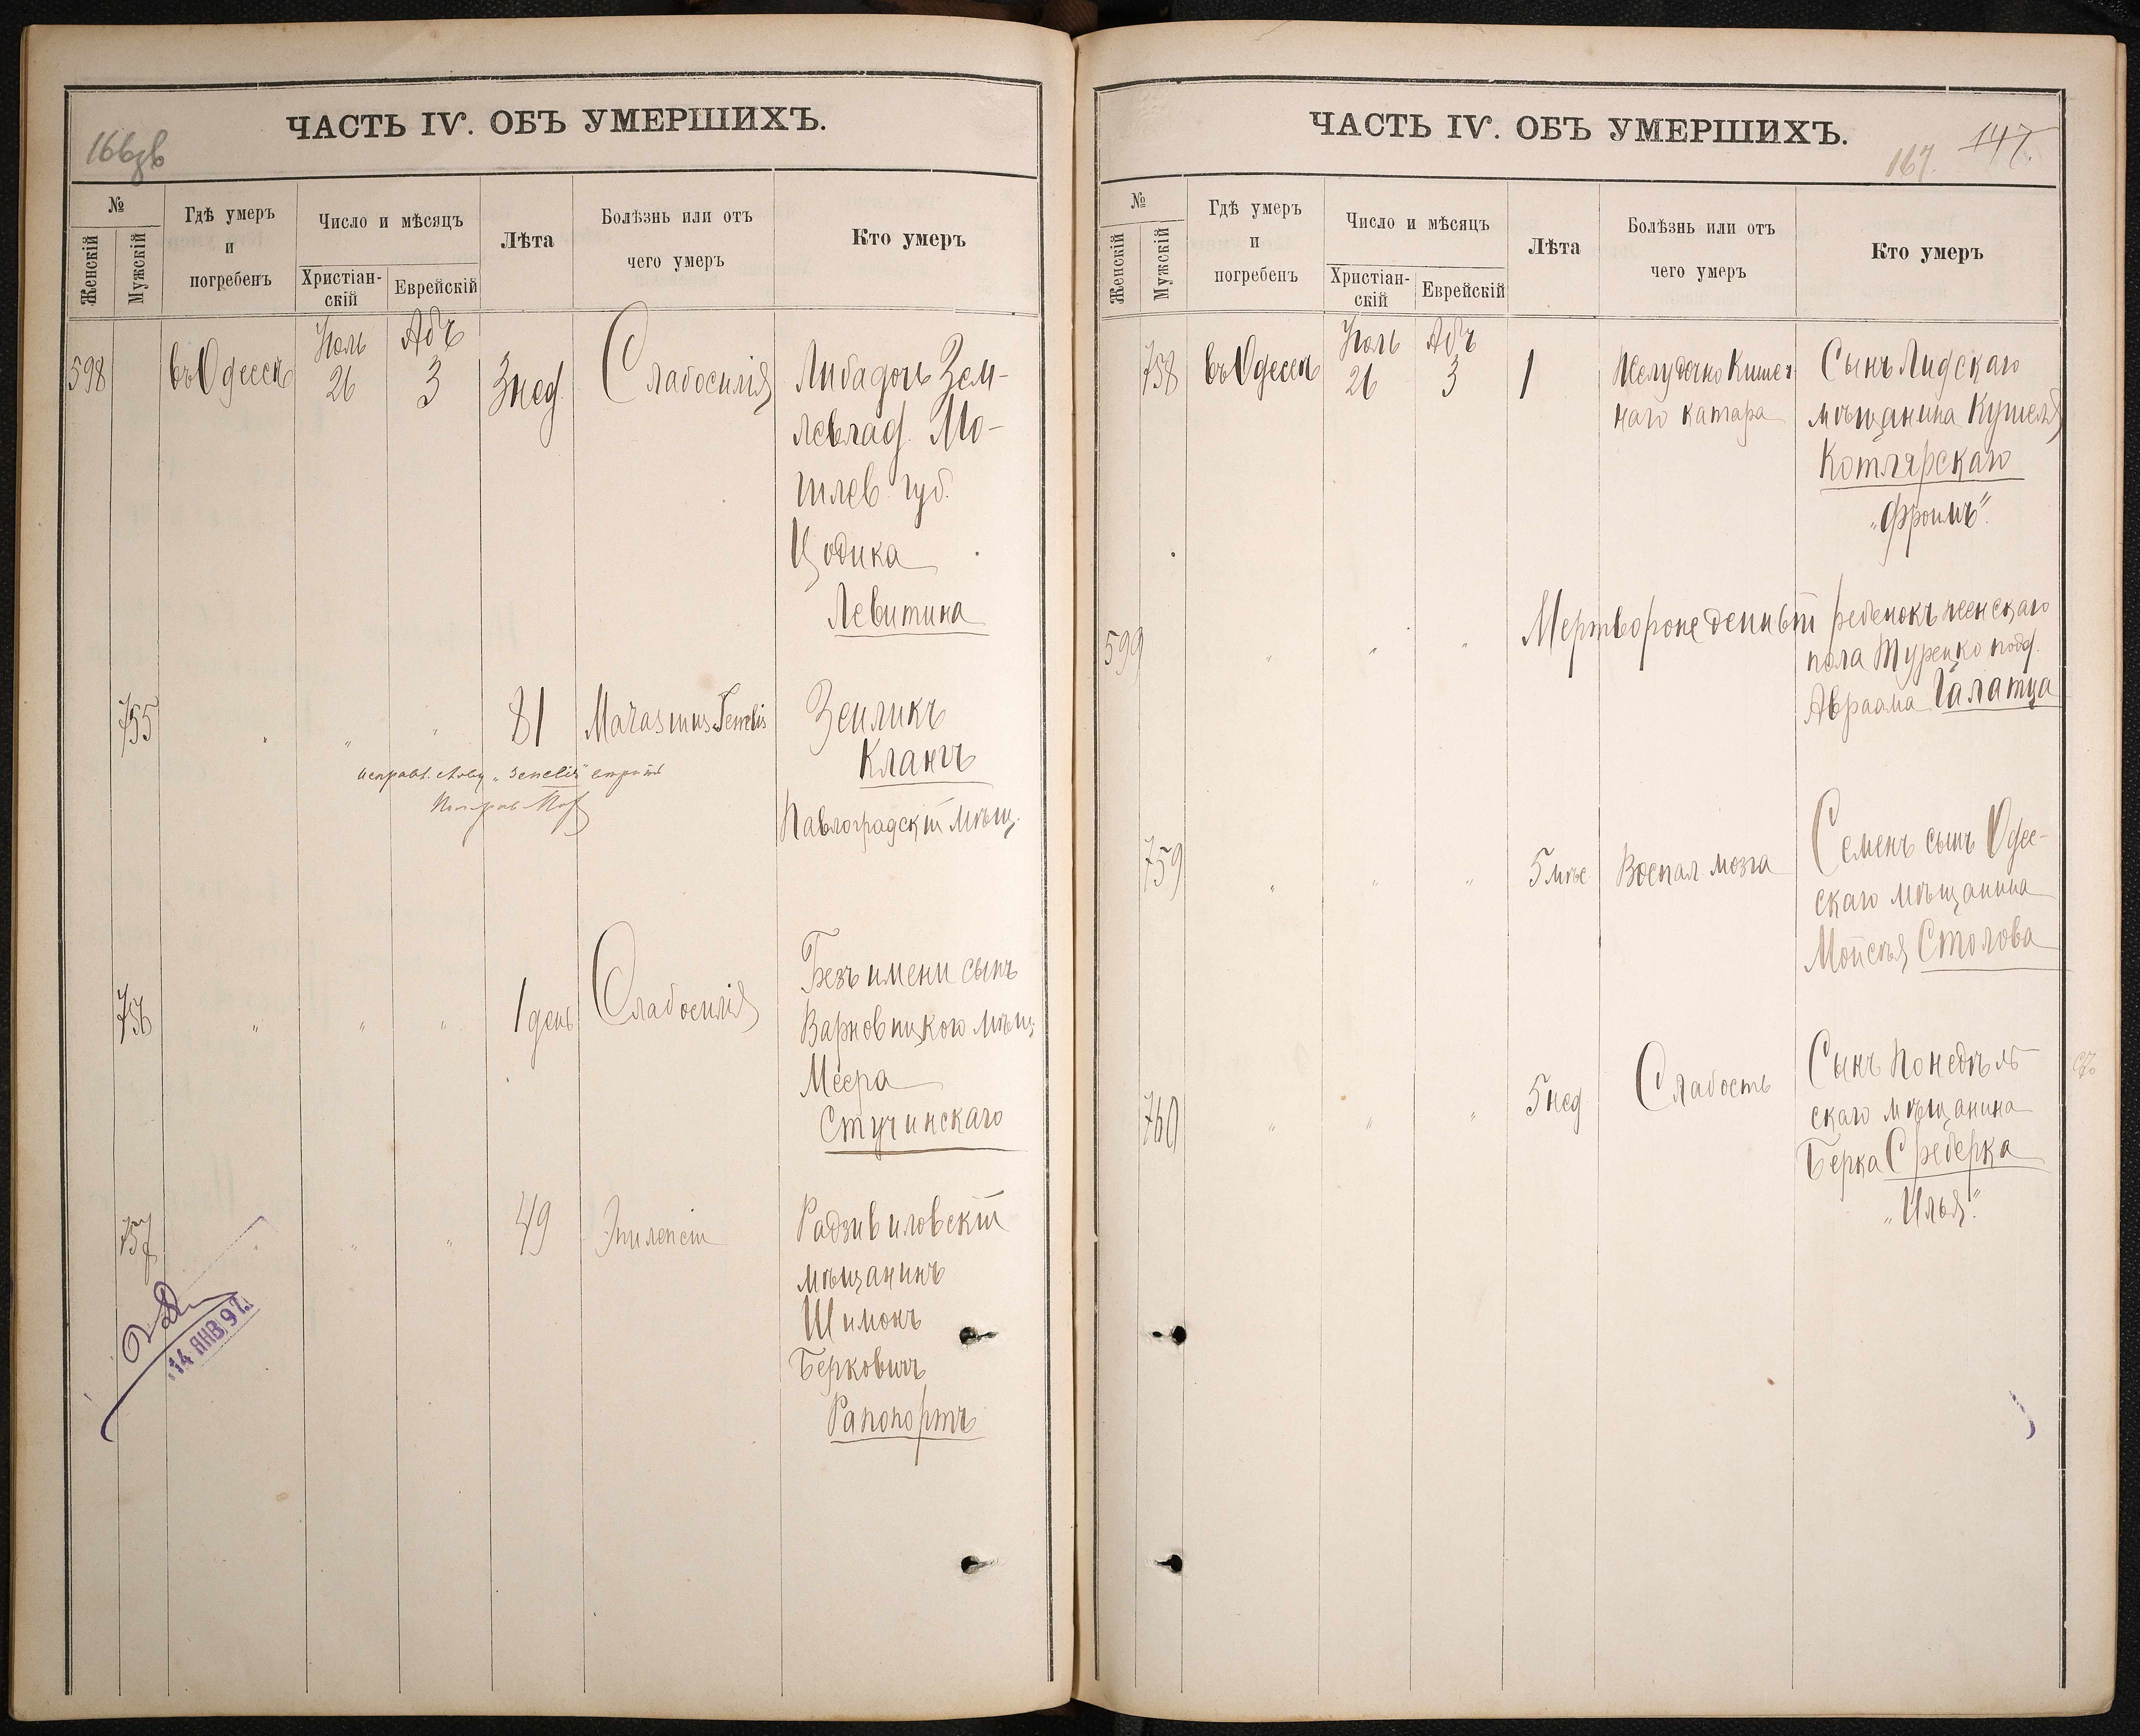 ЧАСТЬ IV. ОБЪ УМЕРШИХЪ.
№
Женскій
Мужскій
Гдѣ умеръ
и
погребенъ
Число и мѣсяцъ
Христіан-
скій
Еврейскій
Лѣта
Болѣзнь или отъ
чего умеръ
Кто умеръ
598
въ Одессѣ
Іюль
26
Абъ
3
3 нед.
Слабосилія
Либа дочь Зем-
левлад. Мо-
гилев. губ.
Цодика
Левитина
755
" " "
81
Marasmus Senelis
Зеиликъ
Клангъ
Павлоградскій мѣщ.
"senelis"
756
" " "
1 день
Слабосилія
Безъ имени сынъ
Варновицкого мѣщ.
Меера
Стучинскаго
757
" " "
49
Эпилепсія
Радзивиловскій
мѣщанинъ
Шимонъ
Берковичъ
Рапопортъ
14 ЯНВ. 97.
ЧАСТЬ IV. ОБЪ УМЕРШИХЪ.
167.
147.
№
Женскій
Мужскій
Гдѣ умеръ
и
погребенъ
Число и мѣсяцъ
Христіан-
скій
Еврейскій
Лѣта
Болѣзнь или отъ
чего умеръ
Кто умеръ
758
въ Одессѣ
Іюль
26
Абъ
3
1
Желудочно Кишеч-
наго катара
Сынъ Лидскаго
мѣщанина Кушеля
Котлярскаго
"Фроимъ".
599
" " "
Мертворожденный ребенокъ женскаго
пола Турецко подд.
Авраама Галатца
759
" " "
5 мѣс
Воспал. мозга
Семенъ сынъ Одес-
скаго мѣщанина
Мойсѣя Столова
760
" " "
5 нед
Слабость
Сынъ Понедѣль-
скаго мѣщанина
Берка Среберка
"Илья".